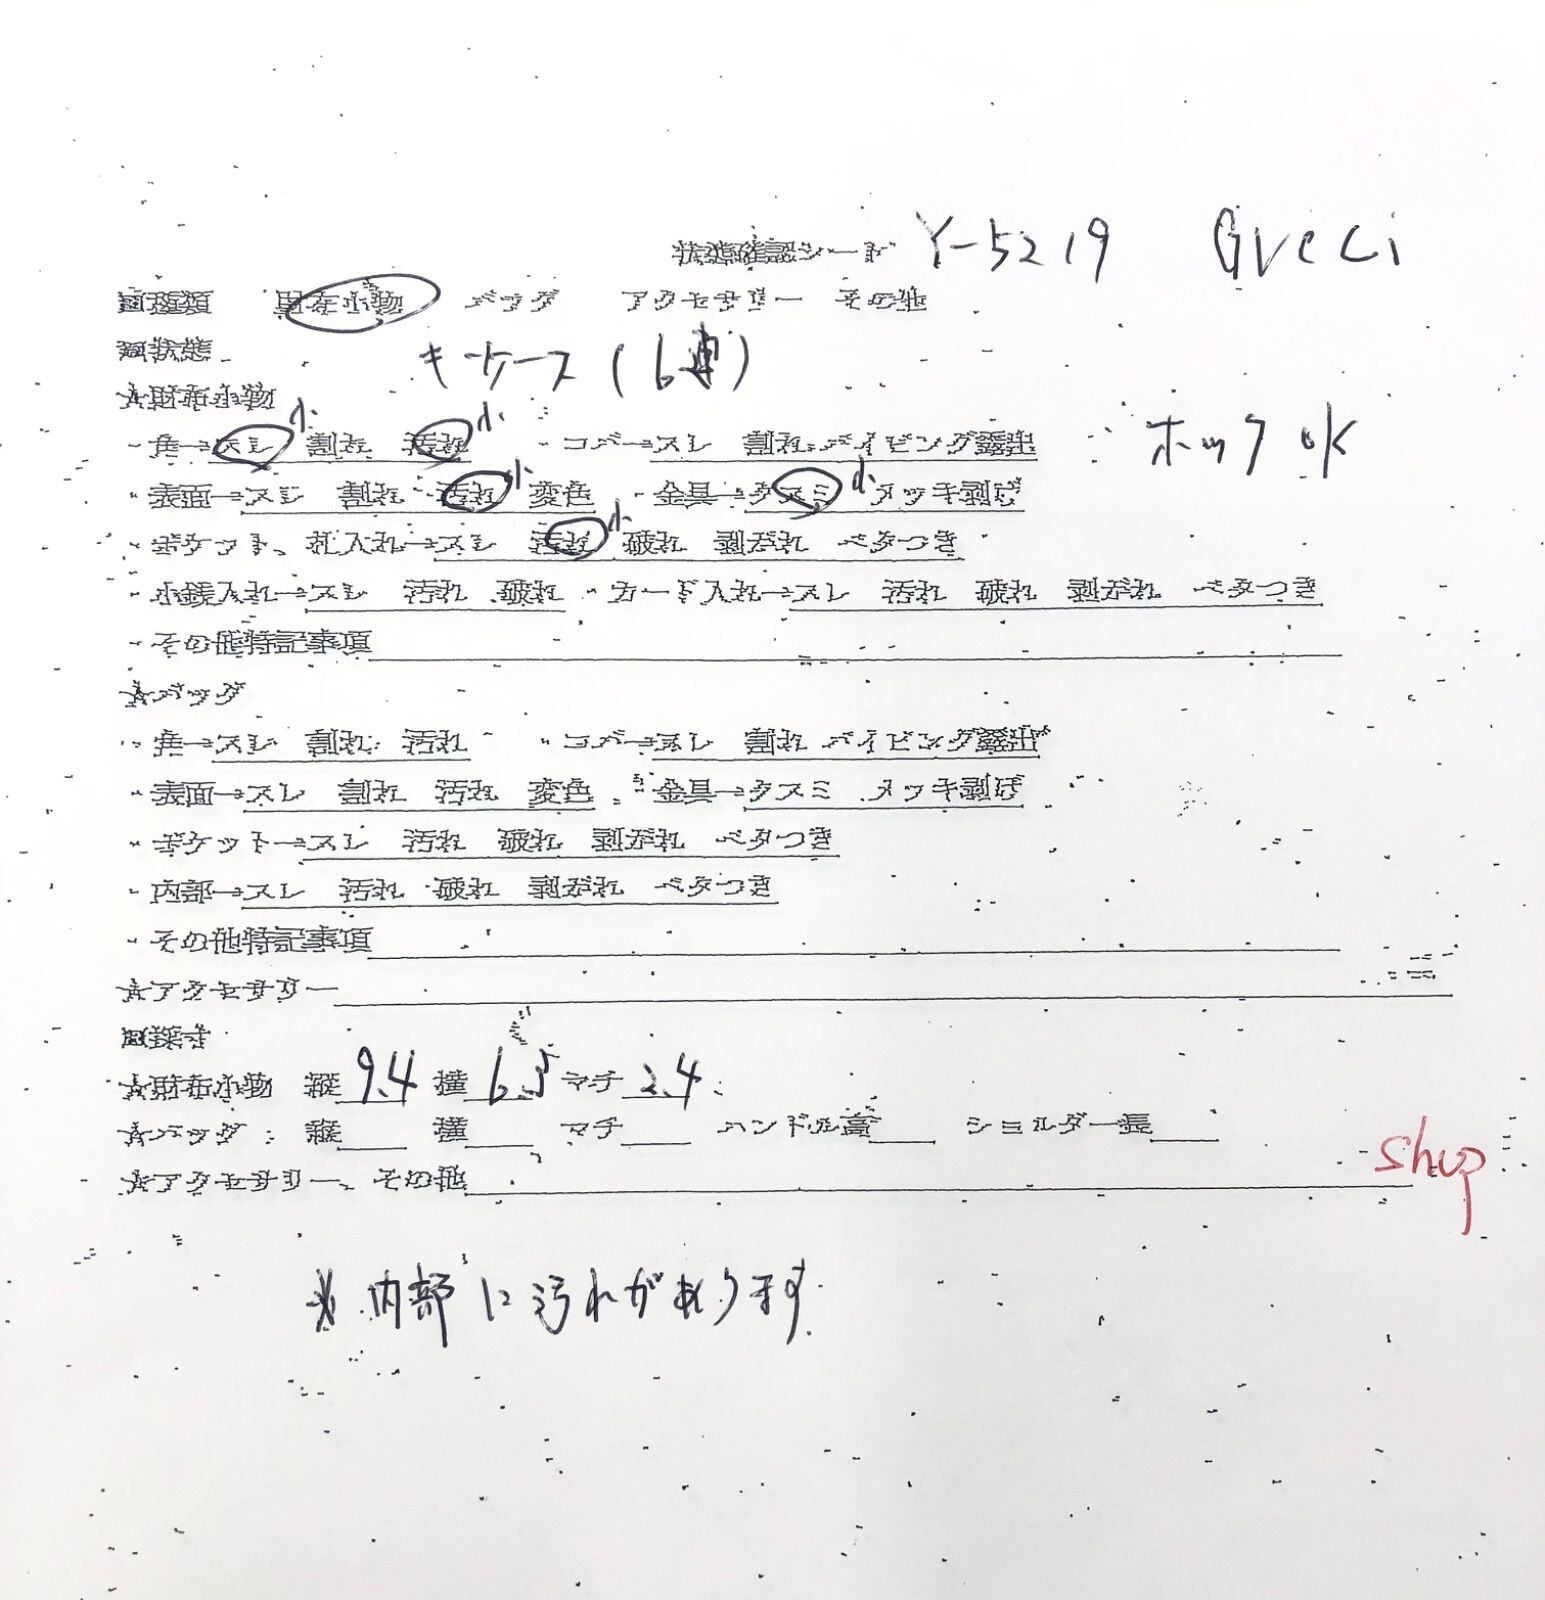 状態確認シート Y-5219 GUCCI
■種類 財布小物 バッグ アクセサリー その他
■状態 キーケース(6連)
☆財布小物
・角→スレ小 割れ 汚れ小 ・コバ→スレ 割れ パイピング露出 ホックOK
・表面→スレ 割れ 汚れ小 変色 ・金具→クスミ小 メッキ剥げ
・ポケット、札入れ→スレ 汚れ小 破れ 剥がれ ベタつき
・小銭入れ→スレ 汚れ 破れ ・カード入れ→スレ 汚れ 破れ 剥がれ ベタつき
・その他特記事項
☆バッグ
・角→スレ 割れ 汚れ ・コバ→スレ 割れ パイピング露出
・表面→スレ 割れ 汚れ 変色 ・金具→クスミ メッキ剥げ
・ポケット→スレ 汚れ 破れ 剥がれ ベタつき
・内部→スレ 汚れ 破れ 剥がれ ベタつき
・その他特記事項
☆アクセサリー
■採寸
☆財布小物 縦9.4 横6.5 マチ2.4
☆バッグ 縦 横 マチ ハンドル高 ショルダー長
☆アクセサリー、その他
shop
※内部に汚れがあります